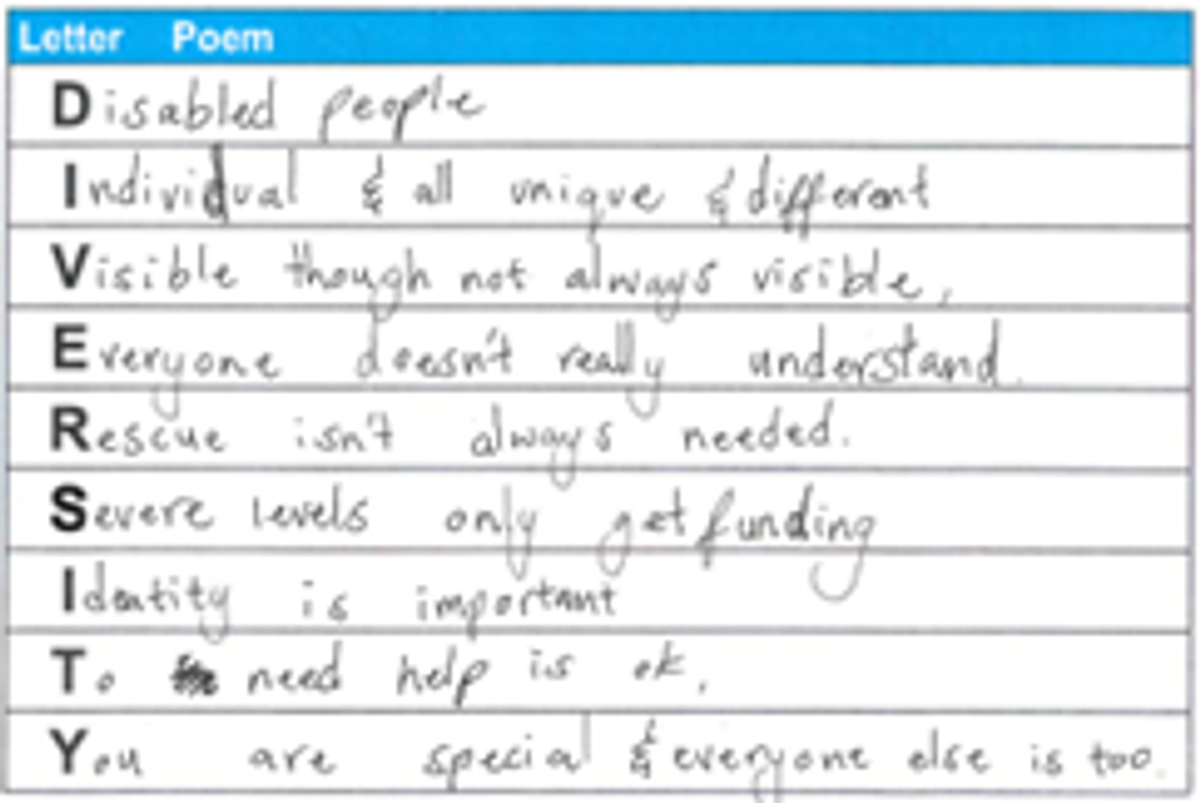 Letter Poem
Disabled people
Individual & all unique & different
Visible though not always visible,
Everyone doesn't really understand.
Rescue isn't always needed.
Severe levels only get funding
Identity is important
To need help is ok.
You are special & everyone else is too.